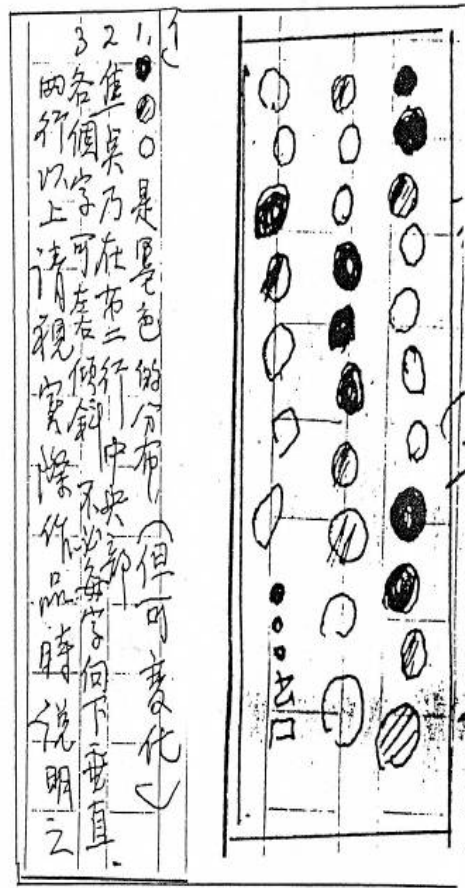 1. 是墨色的分布(但可変化)
2 焦臭乃在第二行中央部
3 各個字可左右傾斜 不必每字向下垂直
兩行以上請視實際作品時說明之